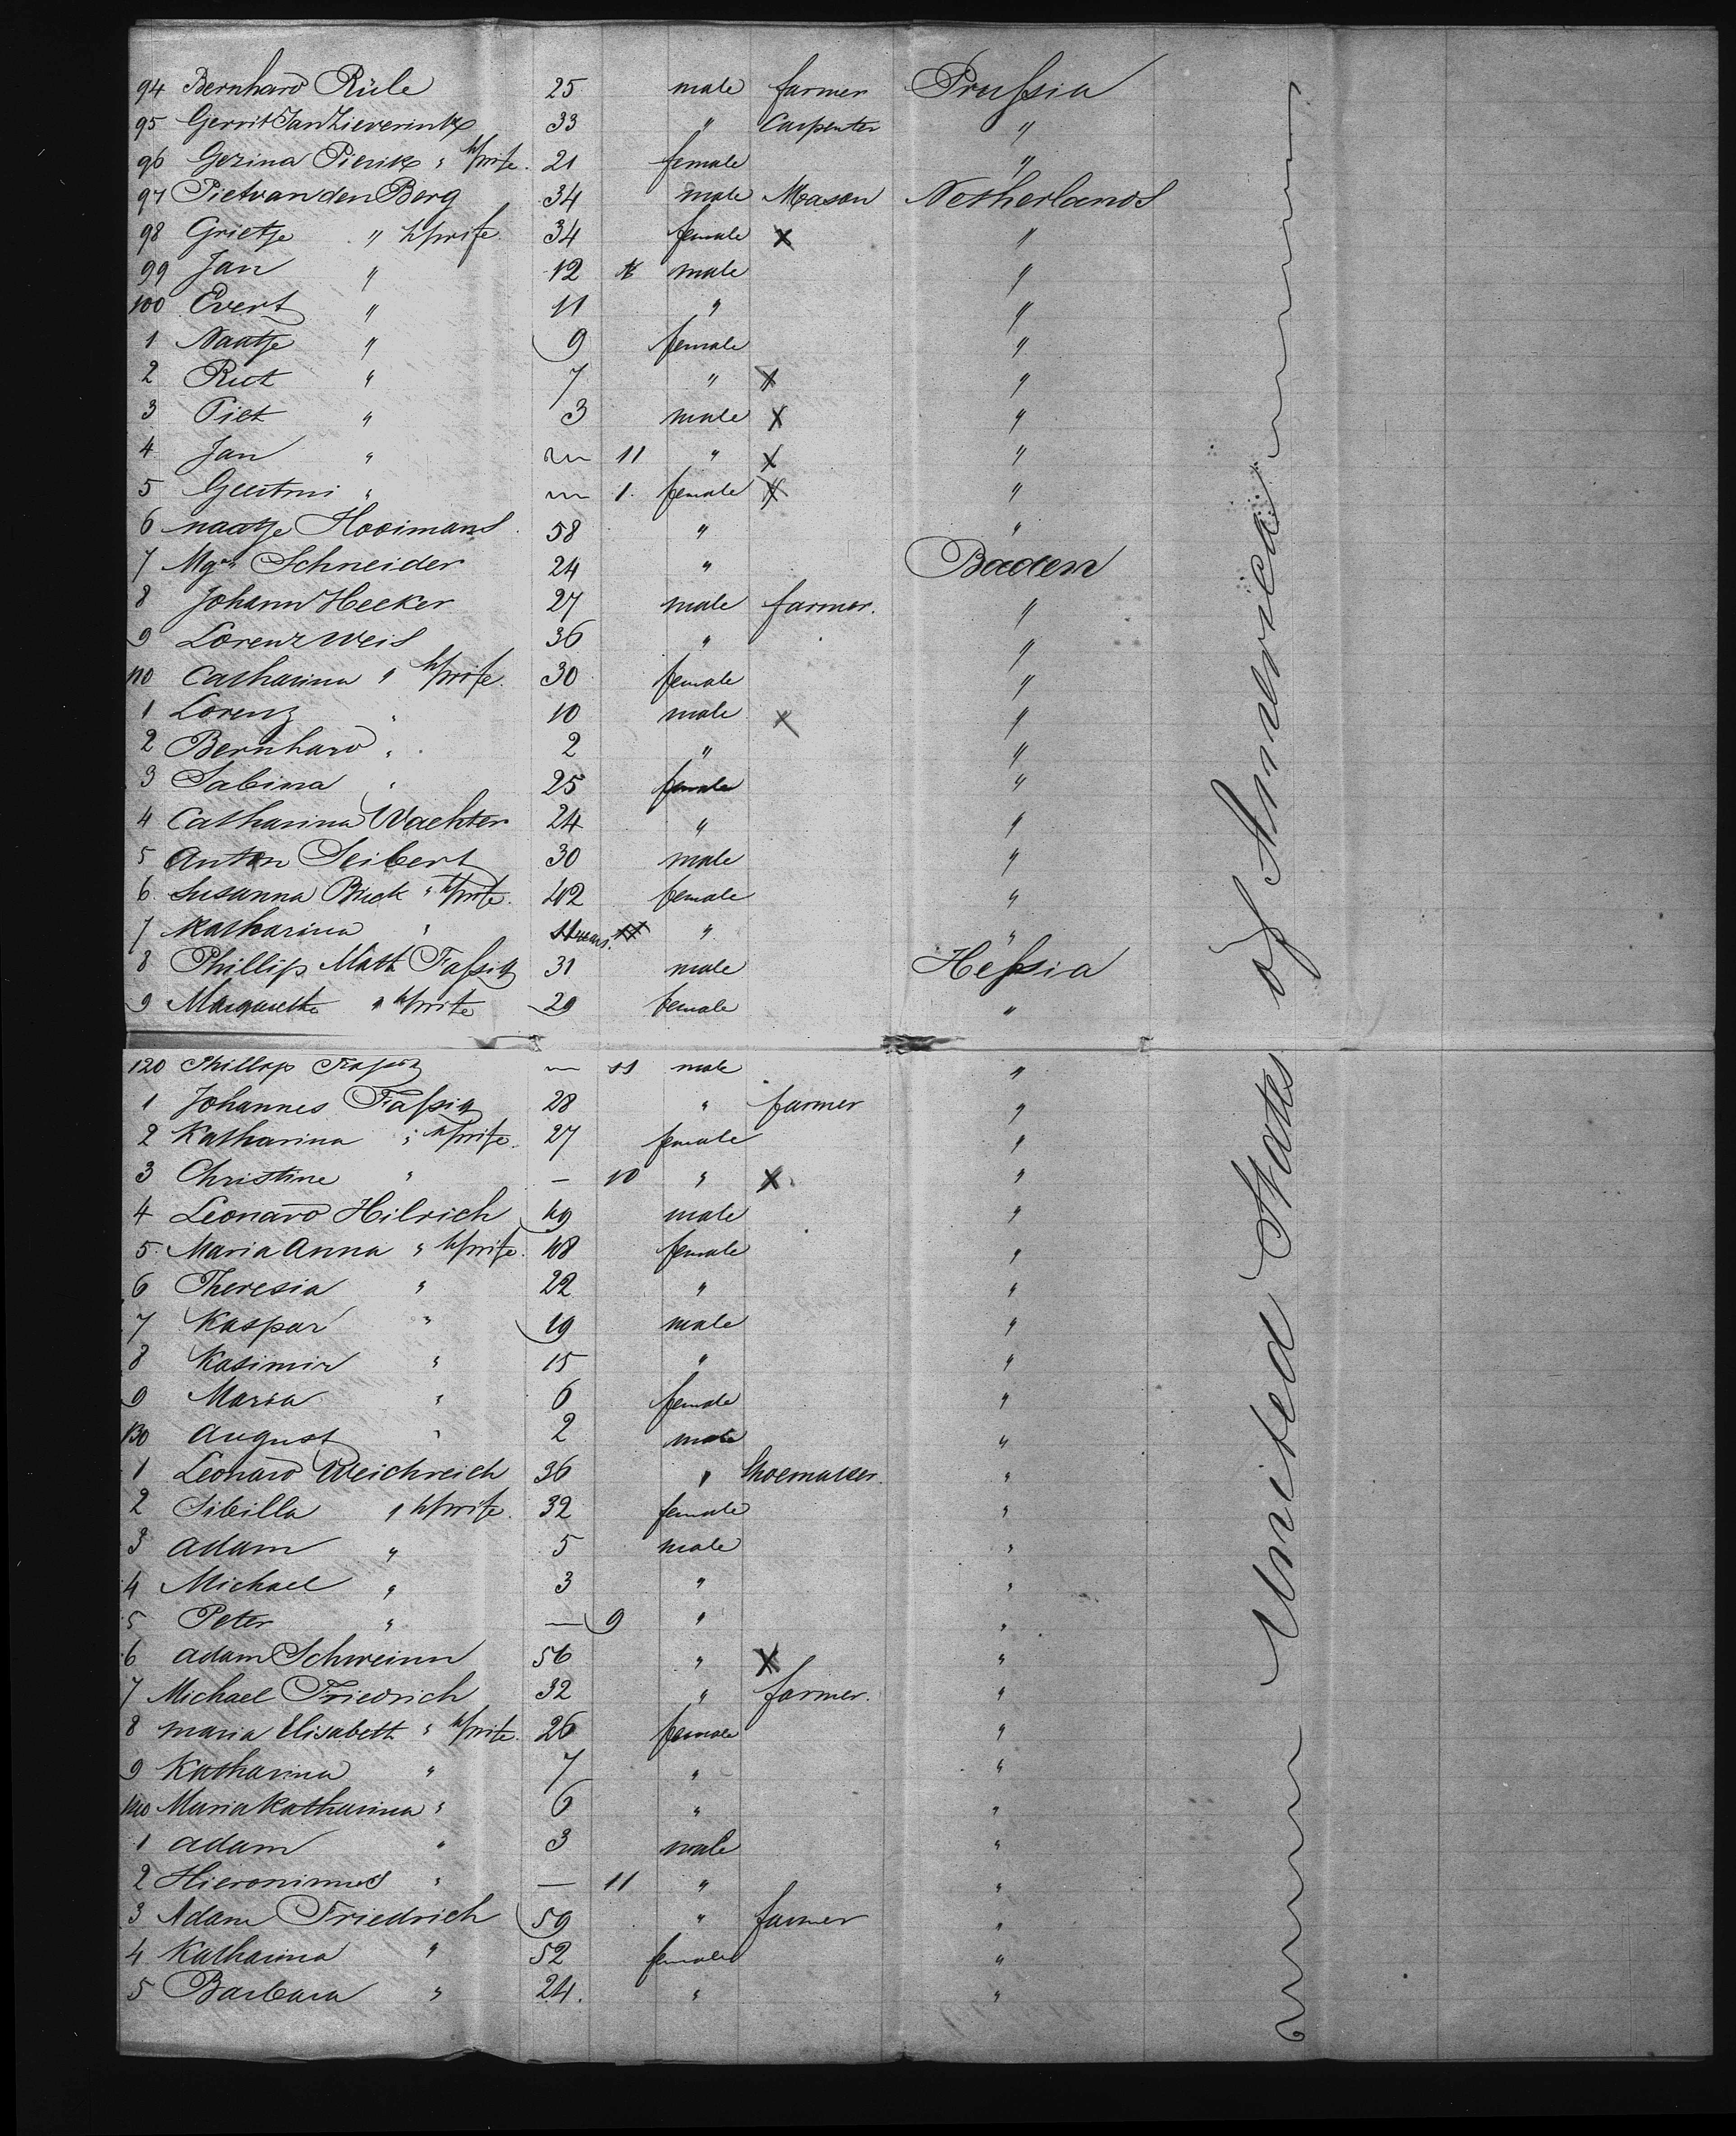 94 Bernhard Rüle 25 male farmer Prussia
95 Gerrit Jan Lieverink 33 " Carpenter "
96 Gezina Pierik " h/wife. 21 female "
97 Piet van den Berg 34 male Mason Netherlands
98 Grietje " h/wife. 34 female X "
99 Jan " 12 male "
100 Evert " 11 " "
1 Naatje " 9 female "
2 Rut " 7 " X "
3 Piet " 3 male X "
4 Jan " 11 " X "
5 " 1. female X "
6 Naatje Hooimans 58 " "
7 Schneider 24 " Baden
8 Johann Hecker 27 male farmer. "
9 Lorenz Weis 36 " "
110 Catharina " h/wife. 30 female "
1 Lorenz " 10 male X "
2 Bernhard " 2 " "
3 Sabina " 25 female "
4 Catharina Wachter 24 " "
5 Anton Seibert 30 male "
6 Susanna " h/wife. 42 female "
7 Katharina " " "
8 Phillip Math Fassig 31 male Hessia
9 Margaretha " h/wife 29 female "
120 Phillip Fassig — 11 male "
1 Johannes Fassig 28 " farmer "
2 Katharina " h/wife. 27 female "
3 Christine " — 10 " X "
4 Leonard Hilrich 49 male "
5 Maria Anna " h/wife. 48 female "
6 Theresia " 22 " "
7 Kaspar " 19 male "
8 Kasimir " 15 " "
9 Maria " 6 female "
130 August " 2 male "
1 Leonard Weichreich 36 " Shoemaker. "
2 Sibilla " h/wife. 32 female "
3 Adam " 5 male "
4 Michael " 3 " "
5 Peter " — 9 " "
6 Adam Schweinn 56 " X "
7 Michael Friedrich 32 " farmer. "
8 Maria Elisabeth " h/wife. 26 female "
9 Katharina " 7 " "
140 Maria Katharina " 6 " "
1 Adam " 3 male "
2 Hieronimus " — 11 " "
3 Adam Friedrich 59 " farmer "
4 Katharina " 52 female "
5 Barbara " 24. " "
United States of America